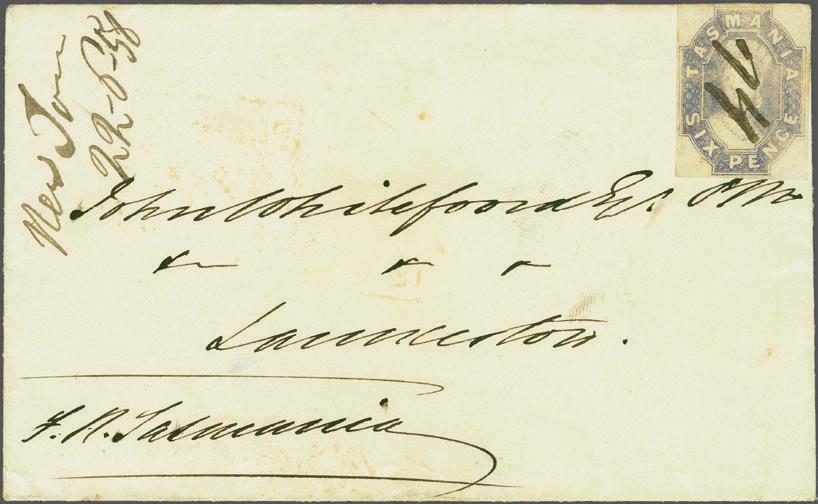 New Town
22-6-58
TASMANIA
SIX PENCE
74
John Whitefoord Esqr. P.M.
&c &c &c
Launceston.
F. R. Tasmania